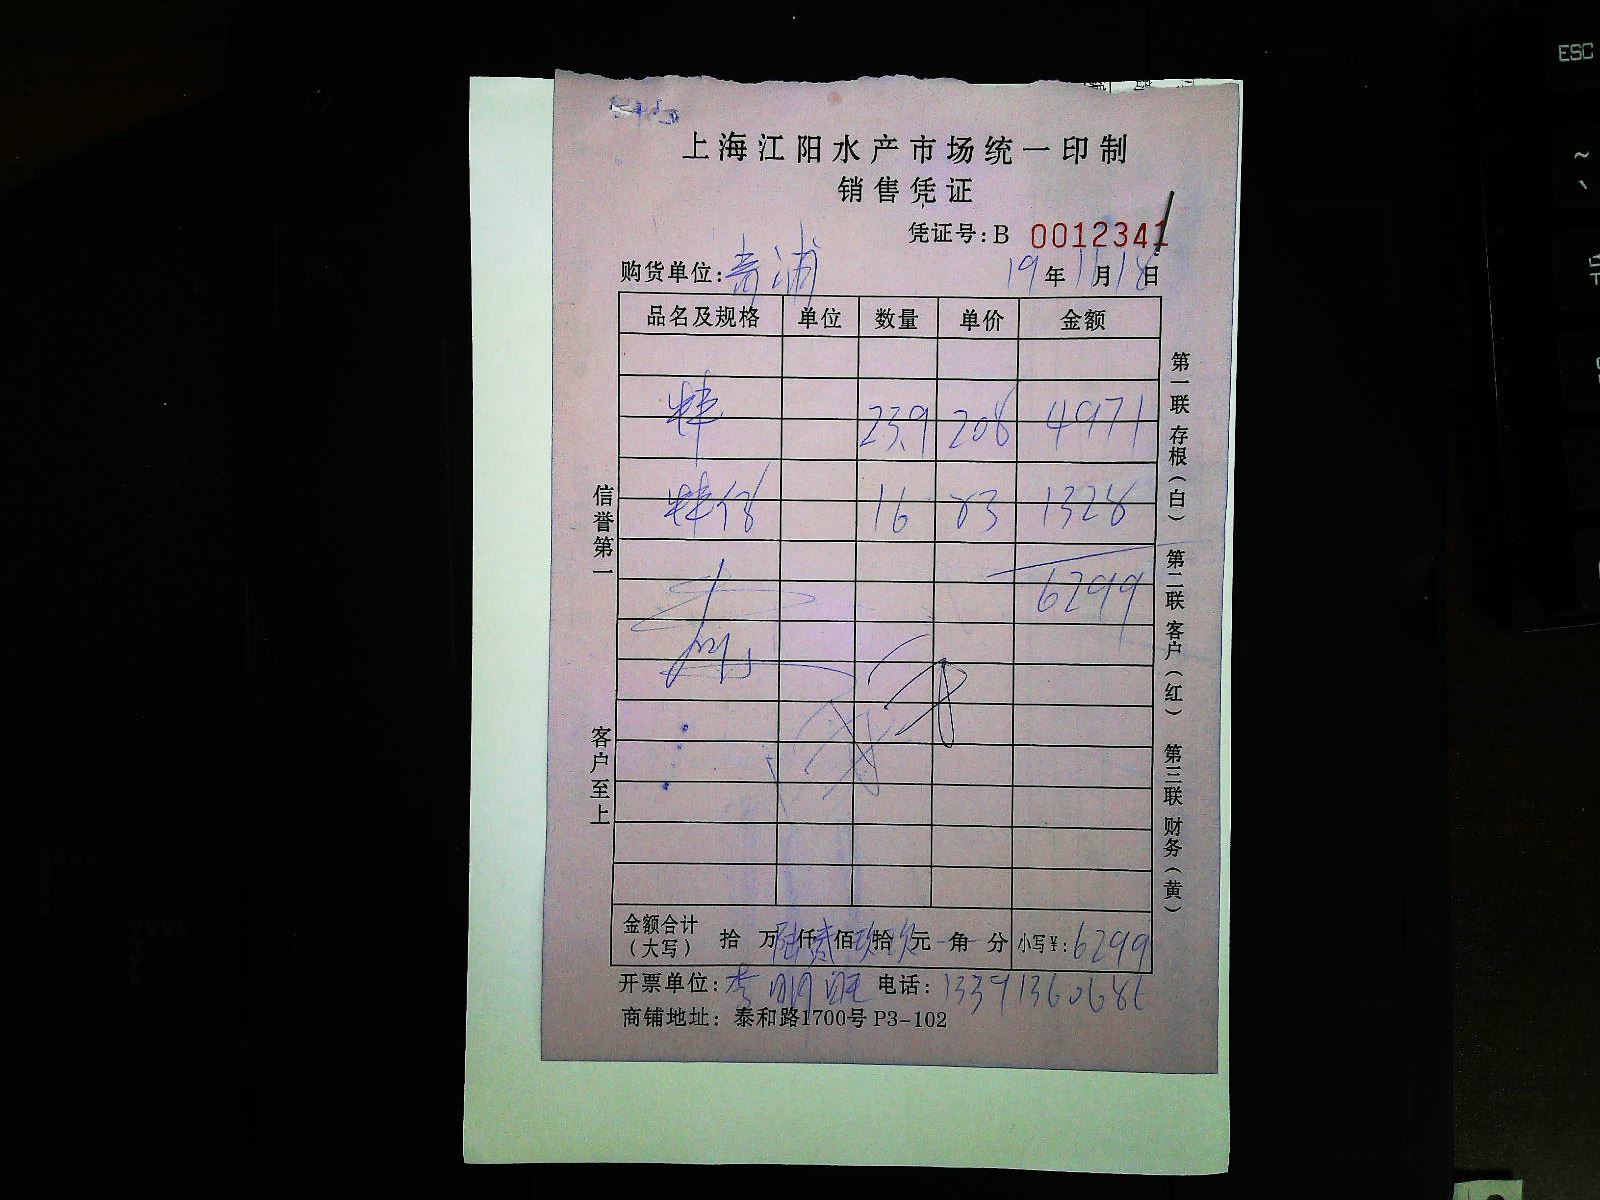 上海江阳水产市场统一印制
销售凭证
凭证号:B 0012341
购货单位:青浦 19年11月18日
品名及规格 单位 数量 单价 金额
23.9 208 4971
16 83 1328
6299
信誉第一
客户至上
第一联 存根(白) 第二联 客户(红) 第三联 财务(黄)
金额合计(大写) 拾 万陆仟贰佰玖拾玖元 角 分 小写¥:6299
开票单位:李明旺 电话:13391360686
商铺地址: 泰和路1700号 P3-102
ESC